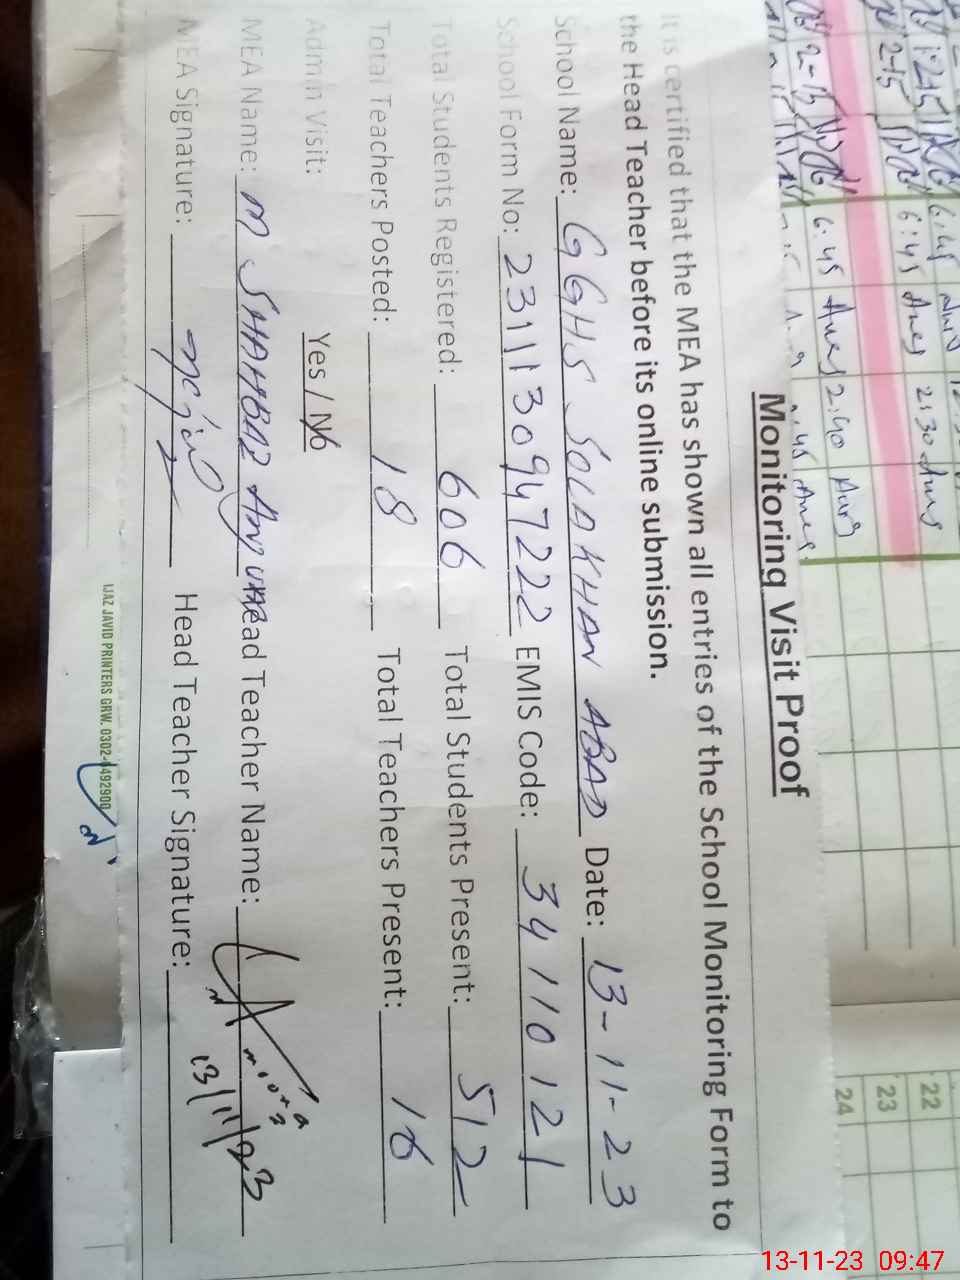 Monitoring Visit Proof
It is certified that the MEA has shown all entries of the School Monitoring Form to
the Head Teacher before its online submission.
School Name: GGHS SOLAKHAN ABAD Date: 13-11-23
School Form No: 2311130947222 EMIS Code: 34110121
Total Students Registered: 606 Total Students Present: 512
Total Teachers Posted: 18 Total Teachers Present: 16
Admin Visit: Yes / No
MEA Name: M SHAHBAZ Head Teacher Name:
13/11/23
MEA Signature: Head Teacher Signature:
IJAZ JAVID PRINTERS GRW. 0302-6492900
6:45
2:30
6:45
2:40
22
23
24
13-11-23 09:47